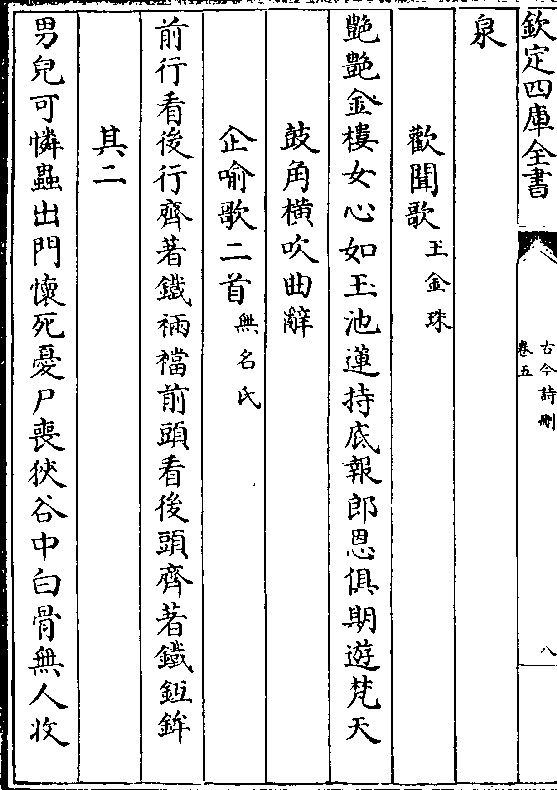 欽定四庫全書
古今詩刪
卷五
八
泉
歡聞歌 王金珠
艷艷金樓女心如玉池蓮持底報郎恩俱期遊梵天
鼓角橫吹曲辭
企喻歌二首 無名氏
前行看後行齊著鐵裲襠前頭看後頭齊著鐵䥐鉾
其二
男兒可憐蟲出門懷死憂尸喪狹谷中白骨無人收